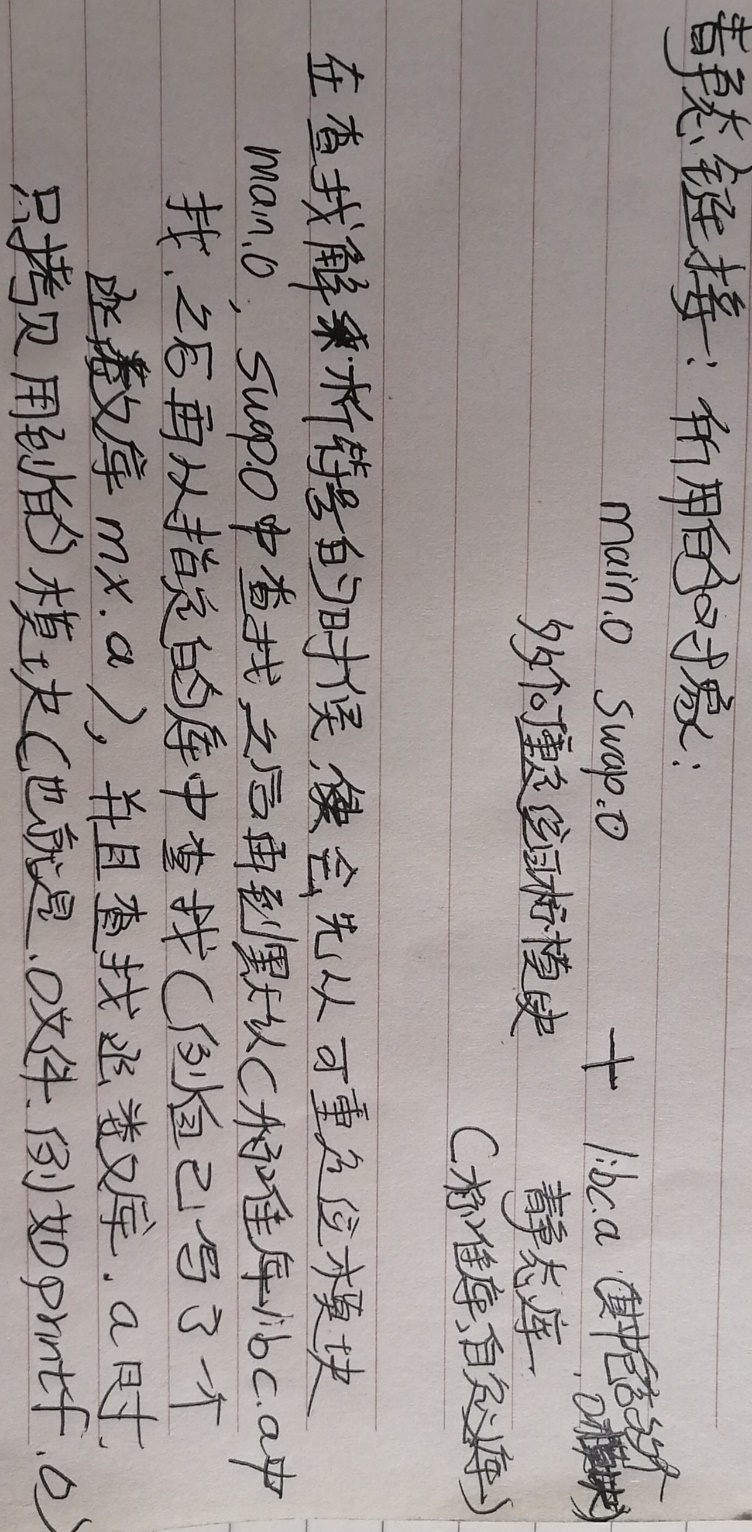 静态链接：所用的对象：
main.o swap.o + libc.a (其中包含多个.o模块)
多个可重定位目标模块 静态库
C标准库、自定义库)
在查找解析符号的时候，会先从可重定位模块
man.o, swap.o中查找，之后再到默认C标准库libc.a中
找，之后再从指定的库中查找(例自己写了一个
函数库mx.a)，并且查找函数库.a时，
只拷贝用到的模块(也就是.o文件.例如printf.o)